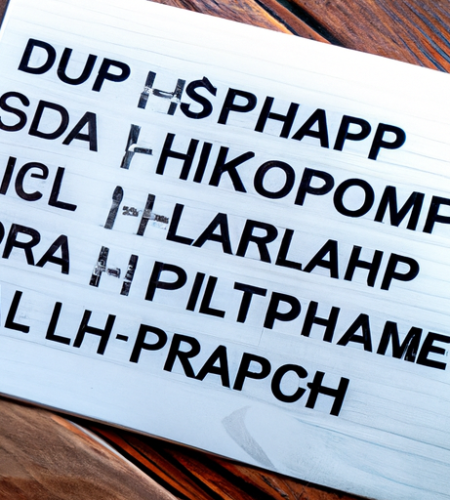 DUP HŜPHAPP
SDA HHIKOPOMP
ICL HLARLAHP
PRA H PILTPHAME
AL LH-PRAPCH